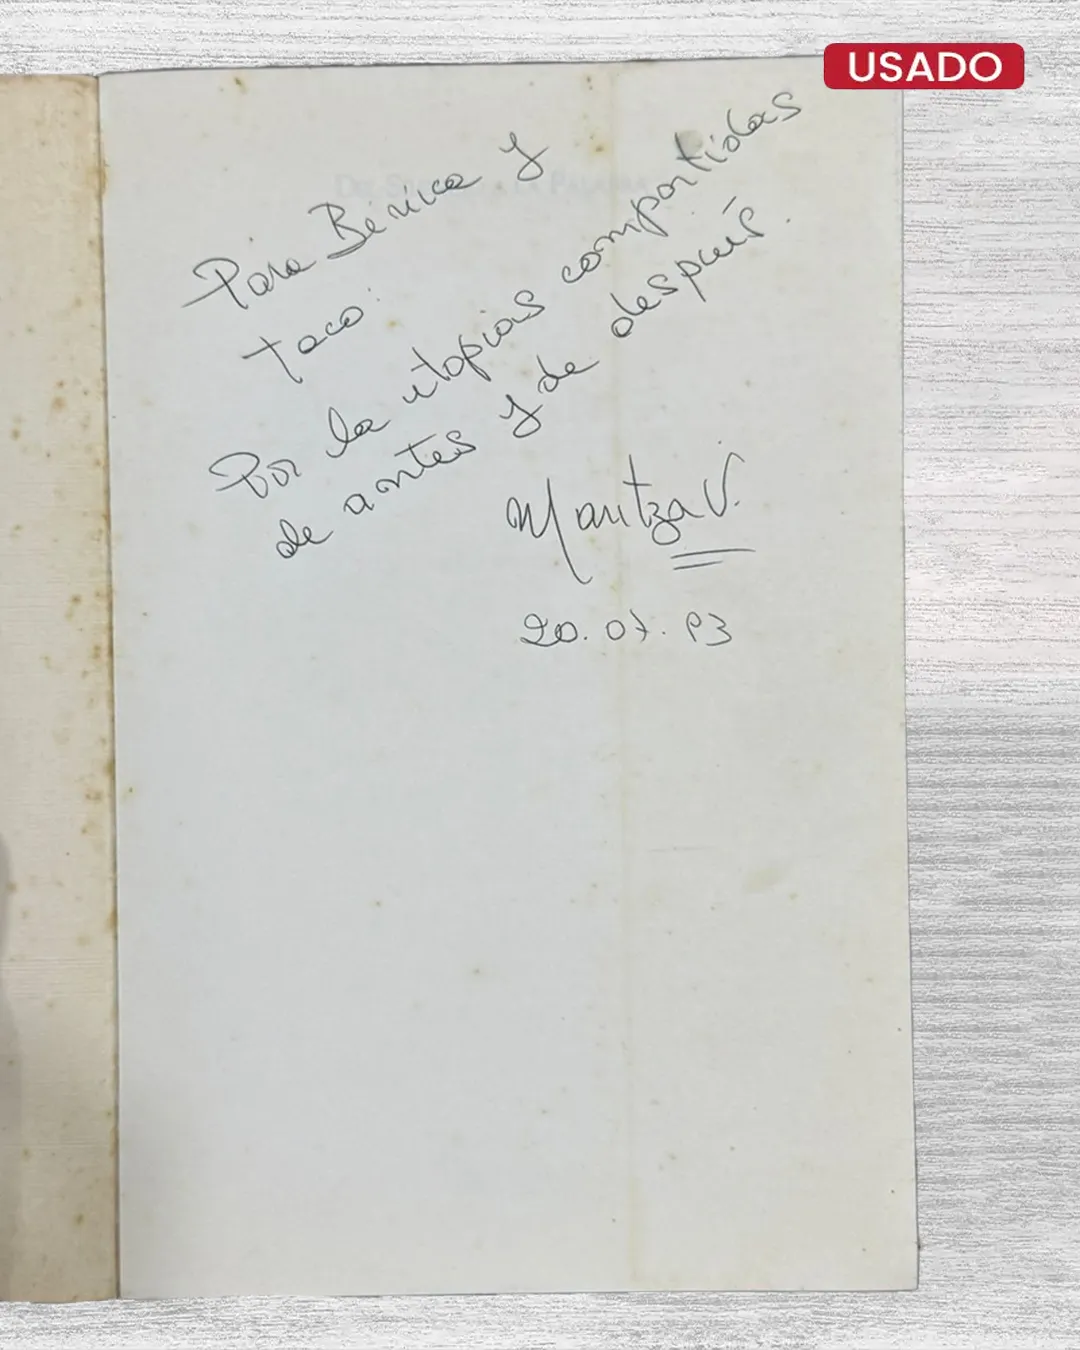 USADO
Para Bérica y
taco:
Por la utopias compartidas
de antes y de después.
Maritza V.
20.07.93